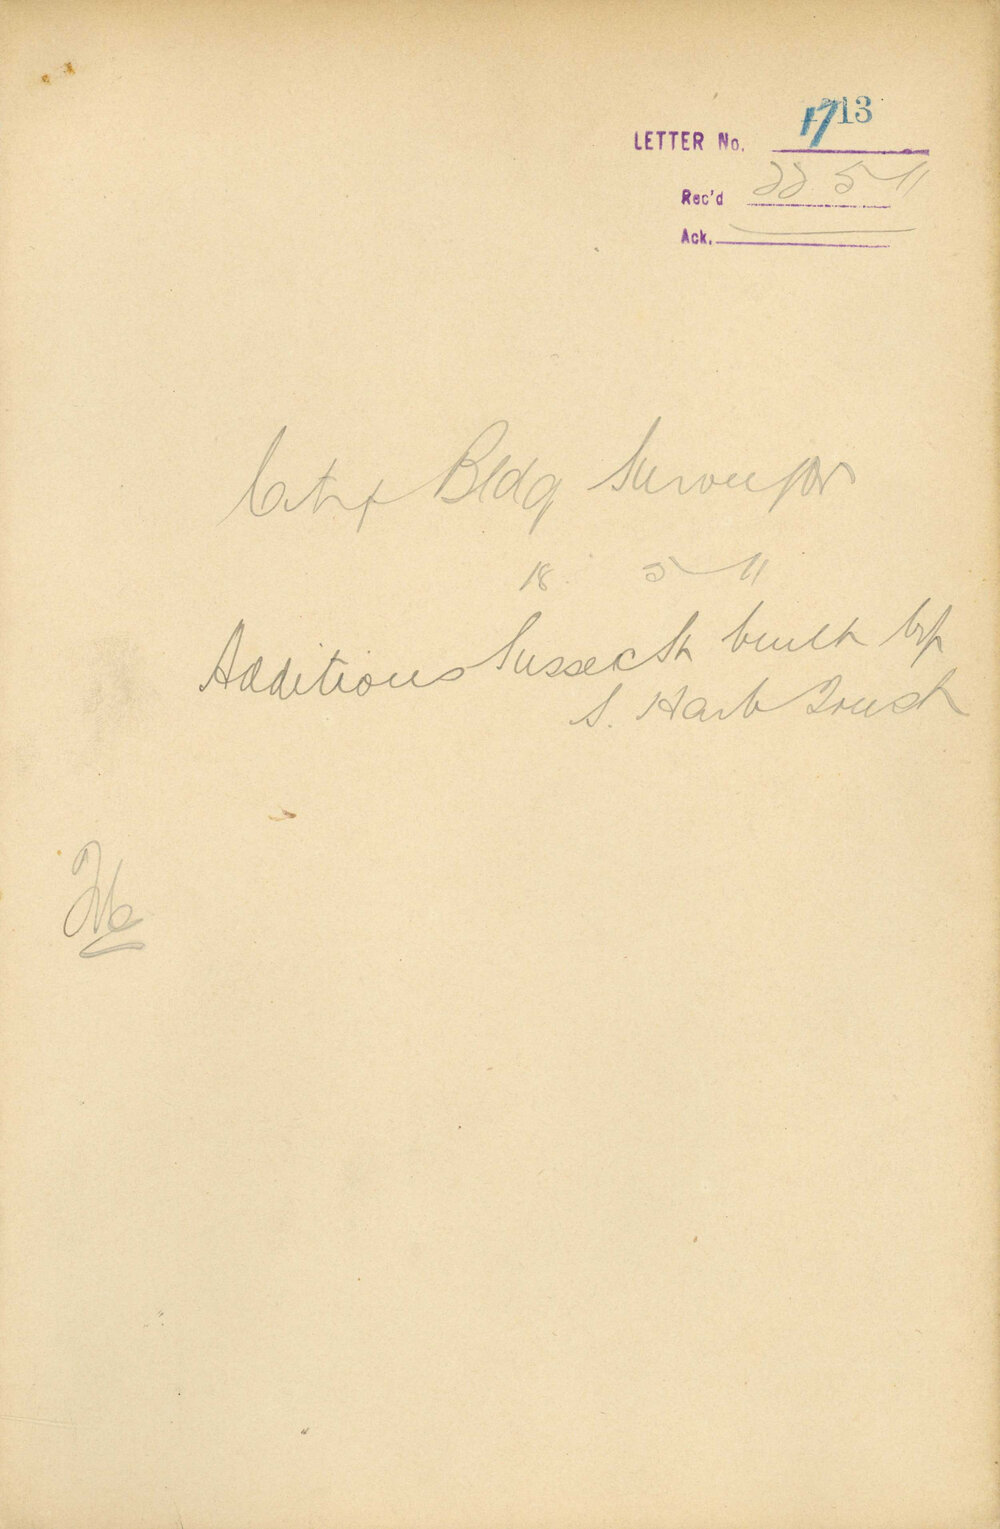 LETTER No. 1713
Rec'd 22 5-11
Ack.
City Bldg Surveyor
18 5-11
Additions Sussex St built by
S. Harb Trust
File